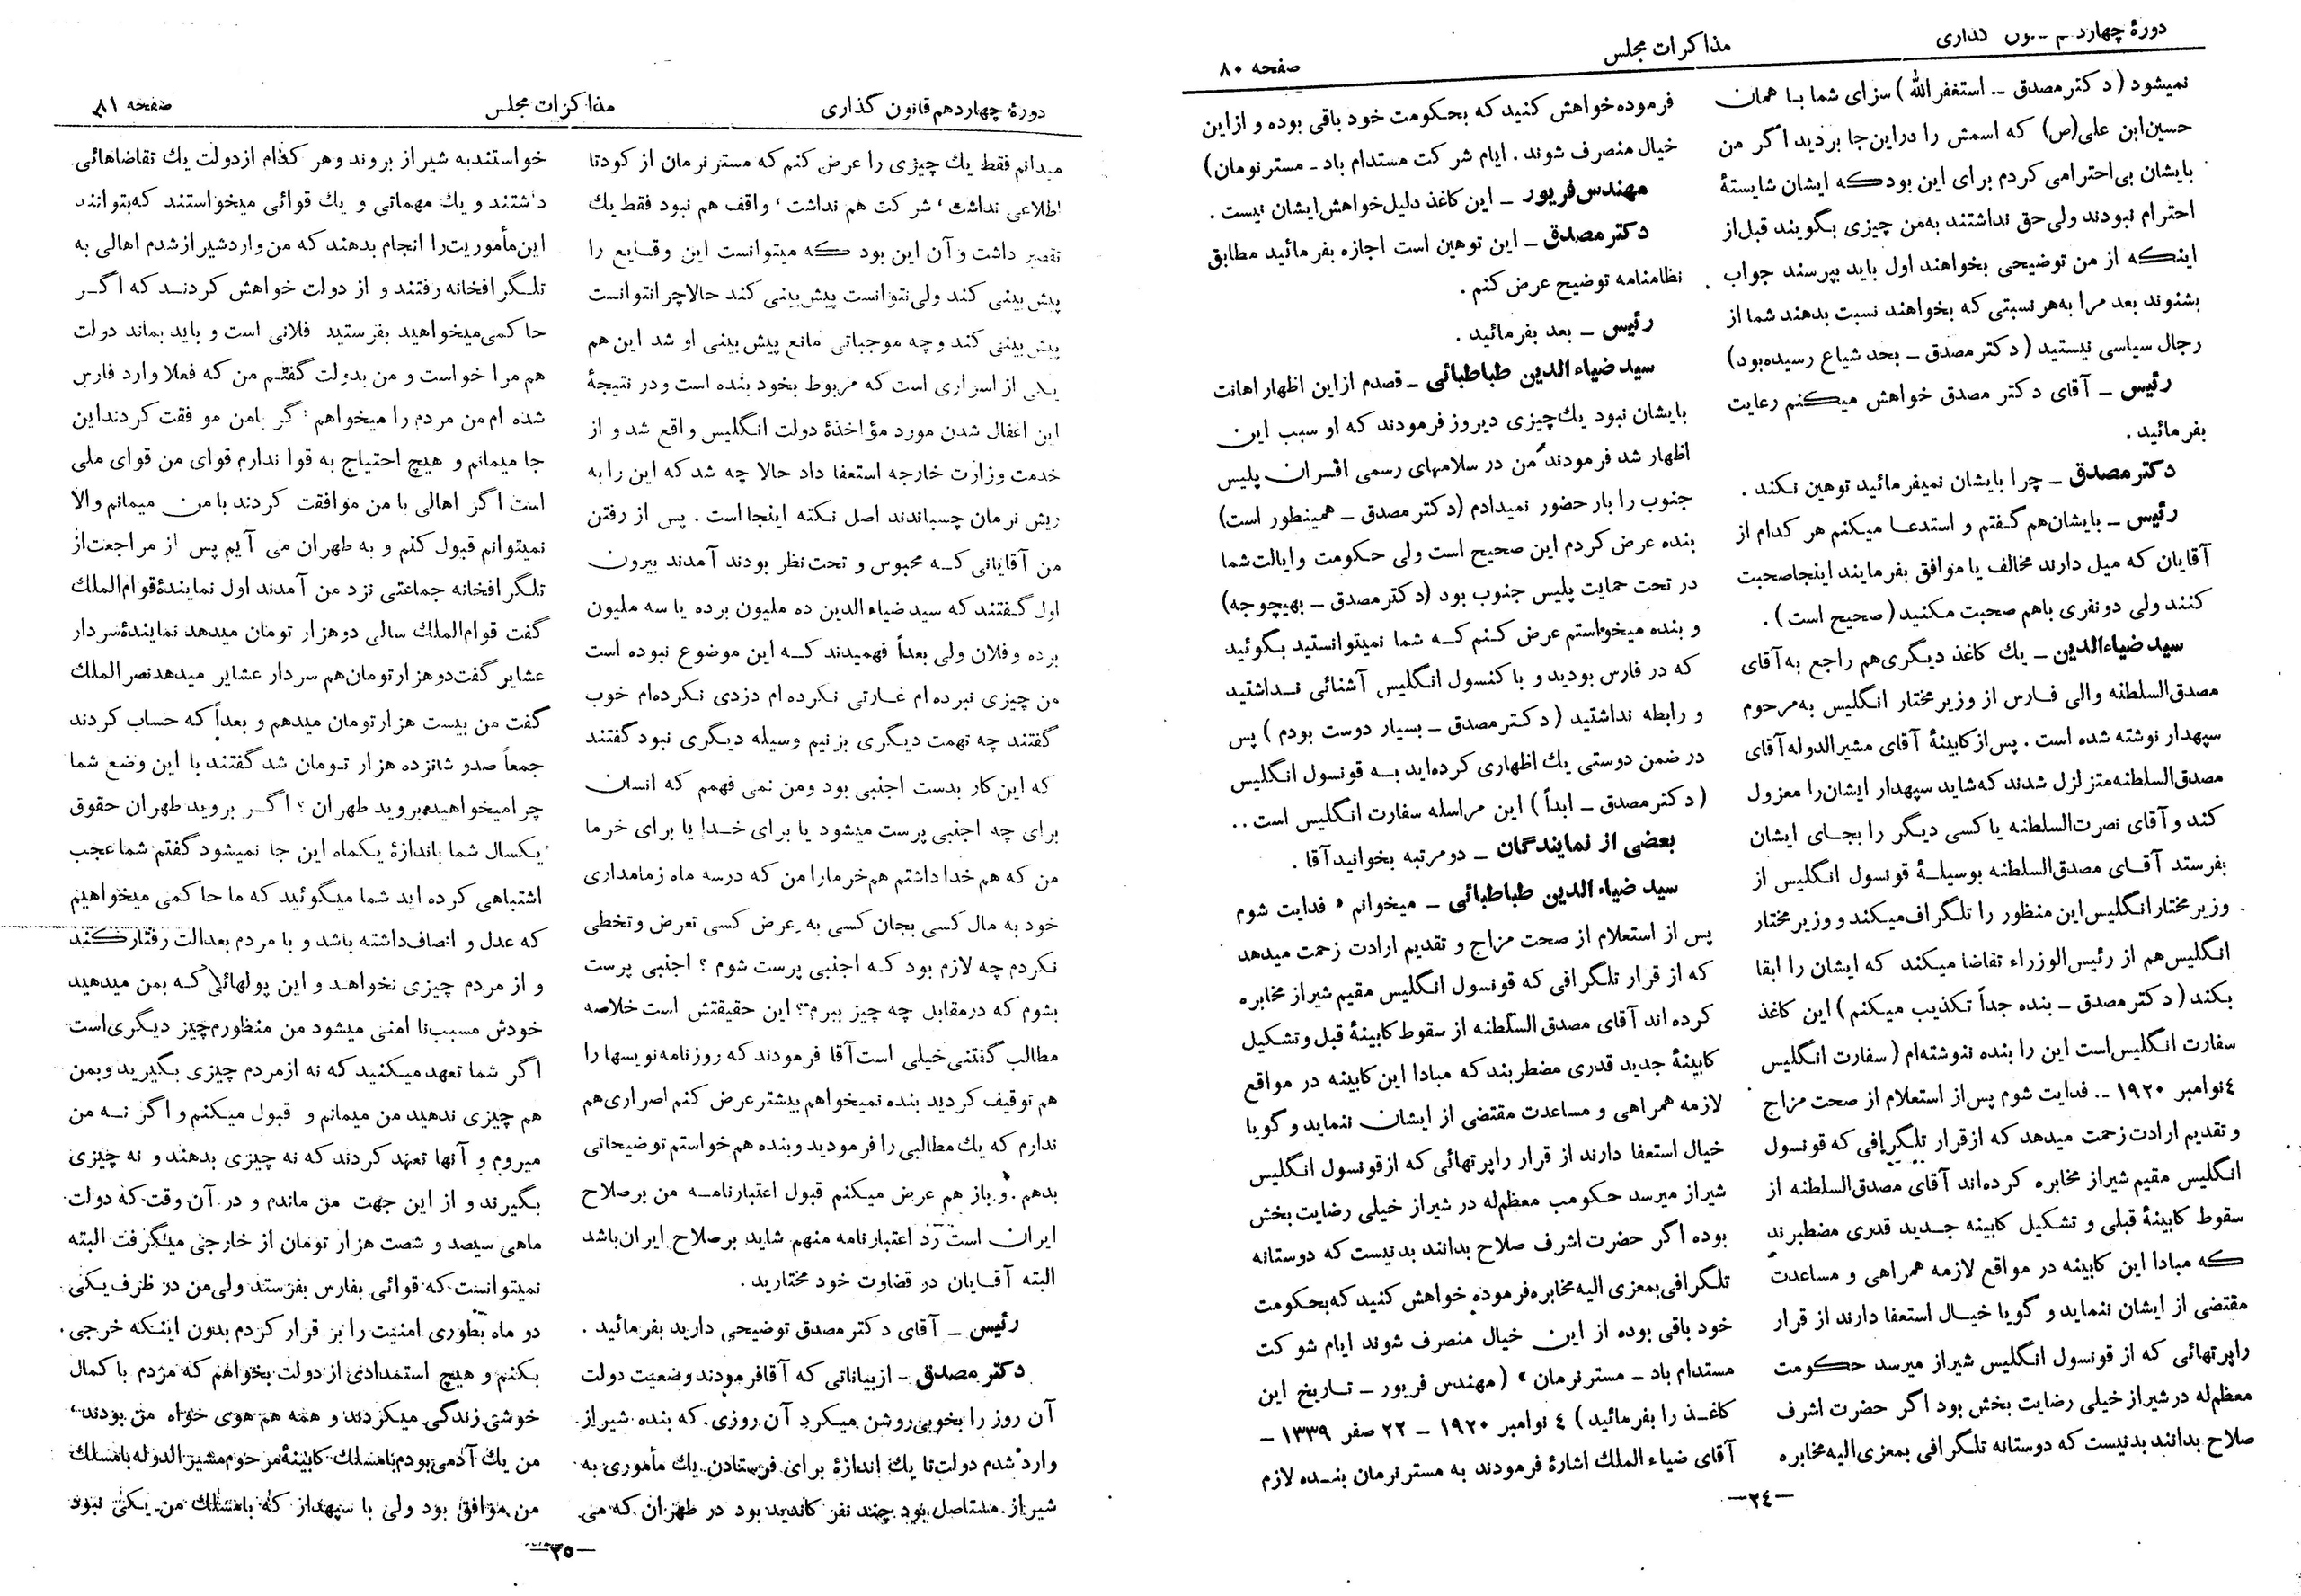 دورهٔ چهاردهم قانون گذاری
مذاکرات مجلس
صفحه ۸۰
نمیشود (دکتر مصدق ـ استغفرالله) سزای شما با همان
حسین‌ابن علی(ص) که اسمش را دراین‌جا بردید اگر من
بایشان بی‌احترامی کردم برای این بودکه ایشان شایستهٔ
احترام نبودند ولی حق نداشتند به‌من چیزی بگویند قبل‌از
اینکه از من توضیحی بخواهند اول باید بپرسند جواب
بشنوند بعد مرا به‌هر نسبتی که بخواهند نسبت بدهند شما از
رجال سیاسی نیستید (دکتر مصدق ـ بحد شیاع رسیده‌بود)
رئیس ـ آقای دکتر مصدق خواهش میکنم رعایت
بفرمائید.
دکتر مصدق ـ چرا بایشان نمیفرمائید توهین نکند.
رئیس ـ بایشان‌هم گفتم و استدعا میکنم هر کدام از
آقایان که میل دارند مخالف یا موافق بفرمایند اینجاصحبت
کنند ولی دونفری باهم صحبت مکنید (صحیح است).
سید ضیاءالدین ـ یك کاغذ دیگری‌هم راجع به‌آقای
مصدق‌السلطنه والی فارس از وزیرمختار انگلیس به‌مرحوم
سپهدار نوشته شده است. پس‌ازکابینهٔ آقای مشیرالدوله آقای
مصدق‌السلطنه‌متزلزل شدند که‌شاید سپهدار ایشان‌را معزول
کند و آقای نصرت‌السلطنه یاکسی دیگر را بجای ایشان
بفرستد آقای مصدق‌السلطنه بوسیلهٔ قونسول انگلیس از
وزیرمختارانگلیس‌این منظور را تلگراف‌میکند و وزیرمختار
انگلیس‌هم از رئیس‌الوزراء تقاضا میکند که ایشان را ابقا
بکند (دکتر مصدق ـ بنده جداً تکذیب میکنم) این کاغذ
سفارت انگلیس‌است این را بنده ننوشته‌ام (سفارت انگلیس
٤نوامبر ۱۹۲۰ ـ فدایت شوم پس‌از استعلام از صحت مزاج
و تقدیم ارادت زحمت میدهد که ازقرار تلگرافی که قونسول
انگلیس مقیم شیراز مخابره کرده‌اند آقای مصدق‌السلطنه از
سقوط کابینهٔ قبلی و تشکیل کابینه جدید قدری مضطربند
که مبادا این کابینه در مواقع لازمه همراهی و مساعدت
مقتضی از ایشان ننماید و گویا خیال استعفا دارند از قرار
راپرتهائی که از قونسول انگلیس شیراز میرسد حکومت
معظم‌له درشیراز خیلی رضایت بخش بود اگر حضرت اشرف
صلاح بدانند بدنیست که دوستانه تلگرافی بمعزی‌الیه مخابره
فرموده خواهش کنید که بحکومت خود باقی بوده و ازاین
خیال منصرف شوند. ایام شرکت مستدام باد ـ مسترنومان)
مهندس فریور ـ این کاغذ دلیل خواهش‌ایشان نیست.
دکتر مصدق ـ این توهین است اجازه بفرمائید مطابق
نظامنامه توضیح عرض کنم.
رئیس ـ بعد بفرمائید.
سید ضیاء الدین طباطبائی ـ قصدم ازاین اظهار اهانت
بایشان نبود یك‌چیزی دیروز فرمودند که او سبب این
اظهار شد فرمودند من در سلامهای رسمی افسران پلیس
جنوب را بار حضور نمیدادم (دکتر مصدق ـ همینطور است)
بنده عرض کردم این صحیح است ولی حکومت و ایالت‌شما
در تحت حمایت پلیس جنوب بود (دکتر مصدق ـ بهیچوجه)
و بنده میخواستم عرض کنم که شما نمیتوانستید بگوئید
که در فارس بودید و با کنسول انگلیس آشنائی نداشتید
و رابطه نداشتید (دکتر مصدق ـ بسیار دوست بودم) پس
در ضمن دوستی یك اظهاری کرده‌اید به قونسول انگلیس
(دکتر مصدق ـ ابداً) این مراسله سفارت انگلیس است..
بعضی از نمایندگان ـ دومرتبه بخوانید آقا.
سید ضیاء الدین طباطبائی ـ میخوانم « فدایت شوم
پس از استعلام از صحت مزاج و تقدیم ارادت زحمت میدهد
که از قرار تلگرافی که قونسول انگلیس مقیم شیراز مخابره
کرده اند آقای مصدق السلطنه از سقوط کابینهٔ قبل و تشکیل
کابینهٔ جدید قدری مضطربند که مبادا این کابینه در مواقع
لازمه همراهی و مساعدت مقتضی از ایشان ننماید و گویا
خیال استعفا دارند از قرار راپرتهائی که ازقونسول انگلیس
شیراز میرسد حکومت معظم‌له در شیراز خیلی رضایت بخش
بوده اگر حضرت اشرف صلاح بدانند بدنیست که دوستانه
تلگرافی‌بمعزی الیه‌مخابره‌فرموده خواهش کنید که‌بحکومت
خود باقی بوده از این خیال منصرف شوند ایام شوکت
مستدام باد ـ مسترنرمان» (مهندس فریور ـ تاریخ این
کاغذ را بفرمائید) ٤ نوامبر ۱۹۲۰ ـ ۲۲ صفر ۱۳۳۹ ـ
آقای ضیاء الملك اشاره فرمودند به مسترنرمان بنده لازم
ـ۲٤ـ
دورهٔ چهاردهم قانون گذاری
مذاکرات مجلس
صفحه ۸۱
میدانم فقط یك چیزی را عرض کنم که مسترنرمان از کودتا
اطلاعی نداشت، شرکت هم نداشت، واقف هم نبود فقط یك
تقصیر داشت و آن این بود که میتوانست این وقایع را
پیش‌بینی کند ولی نتوانست پیش‌بینی کند حالاچرا نتوانست
پیش‌بینی کند و چه موجباتی مانع پیش‌بینی او شد این هم
یکی از اسراری است که مربوط بخود بنده است و در نتیجهٔ
این اغفال شدن مورد مؤاخذهٔ دولت انگلیس واقع شد و از
خدمت وزارت خارجه استعفا داد حالا چه شد که این را به
ریش نرمان چسباندند اصل نکته اینجا است. پس از رفتن
من آقایانی که محبوس و تحت‌نظر بودند آمدند بیرون
اول گفتند که سید ضیاء الدین ده ملیون برده یا سه ملیون
برده و فلان ولی بعداً فهمیدند که این موضوع نبوده است
من چیزی نبرده ام غارتی نکرده ام دزدی نکرده‌ام خوب
گفتند چه تهمت دیگری بزنیم وسیله دیگری نبود گفتند
که این کار بدست اجنبی بود ومن نمی فهمم که انسان
برای چه اجنبی پرست میشود یا برای خدا یا برای خرما
من که هم خدا داشتم هم‌خرمارا من که درسه ماه زمامداری
خود به مال کسی بجان کسی به عرض کسی تعرض و تخطی
نکردم چه لازم بود که اجنبی پرست شوم؟ اجنبی پرست
بشوم که درمقابل چه چیز ببرم؟ این حقیقتش است خلاصه
مطالب گفتنی خیلی است آقا فرمودند که روزنامه‌نویسها را
هم توقیف کردید بنده نمیخواهم بیشترعرض کنم اصراری‌هم
ندارم که یك مطالبی را فرمودید و بنده هم خواستم توضیحاتی
بدهم. و باز هم عرض میکنم قبول اعتبارنامه من برصلاح
ایران است رد اعتبارنامه منهم شاید برصلاح ایران‌باشد
البته آقایان در قضاوت خود مختارید.
رئیس ـ آقای دکتر مصدق توضیحی دارید بفرمائید.
دکتر مصدق ـ ازبیاناتی که آقافرمودند وضعیت دولت
آن روز را بخوبی روشن میکرد آن روزی که بنده شیراز
وارد شدم دولت‌تا یك اندازهٔ برای فرستادن یك مأموری به
شیراز مستاصل بود چند نفر کاندید بود در طهران که می
خواستندبه شیراز بروند و هر کدام ازدولت یك تقاضاهائی
داشتند و یك مهماتی و یك قوائی میخواستند که‌بتوانند
این‌مأموریت‌را انجام بدهند که من واردشیراز شدم اهالی به
تلگرافخانه رفتند و از دولت خواهش کردند که اگر
حاکمی میخواهید بفرستید فلانی است و باید بماند دولت
هم مرا خواست و من بدولت گفتم من که فعلا وارد فارس
شده ام من مردم را میخواهم اگر بامن موفقت کردنداین
جا میمانم و هیچ احتیاج به قوا ندارم قوای من قوای ملی
است اگر اهالی با من موافقت کردند بامن میمانم والا
نمیتوانم قبول کنم و به طهران می آیم پس از مراجعت‌از
تلگرافخانه جماعتی نزد من آمدند اول نمایندهٔ قوام‌الملك
گفت قوام‌الملك سالی دوهزار تومان میدهد نمایندهٔ سردار
عشایر گفت‌دو هزار تومان‌هم سردار عشایر میدهد نصرالملك
گفت من بیست هزارتومان میدهم و بعداً که حساب کردند
جمعاً صدو شانزده هزار تومان شد گفتند با این وضع شما
چرامیخواهید بروید طهران؟ اگر بروید طهران حقوق
یکسال شما باندازهٔ یکماه این جا نمیشود گفتم شماعجب
اشتباهی کرده اید شما میگوئید که ما حاکمی میخواهیم
که عدل و انصاف‌داشته باشد و با مردم بعدالت رفتارکند
و از مردم چیزی نخواهد و این پولهائی که بمن میدهید
خودش مسبب‌نا امنی میشود من منظورم‌چیز دیگری‌است
اگر شما تعهد میکنید که نه ازمردم چیزی بگیرید و بمن
هم چیزی ندهید من میمانم و قبول میکنم و اگر نه من
میروم و آنها تعهد کردند که نه چیزی بدهند و نه چیزی
بگیرند و از این جهت من ماندم و در آن وقت که دولت
ماهی سیصد و شصت هزار تومان از خارجی میگرفت البته
نمیتوانست که قوائی بفارس بفرستد ولی من در ظرف یکی
دو ماه بطوری امنیت را بر قرار کردم بدون اینکه خرجی
بکنم و هیچ استمدادی از دولت بخواهم که مردم با کمال
خوشی زندگی میکردند و همه هم هوی خواه من بودند،
من یك آدمی بودم بامسلك کابینهٔ مرحوم مشیرالدوله بامسلك
من موافق بود ولی با سپهدار که بامسلك من یکی نبود
ـ۲٥ـ